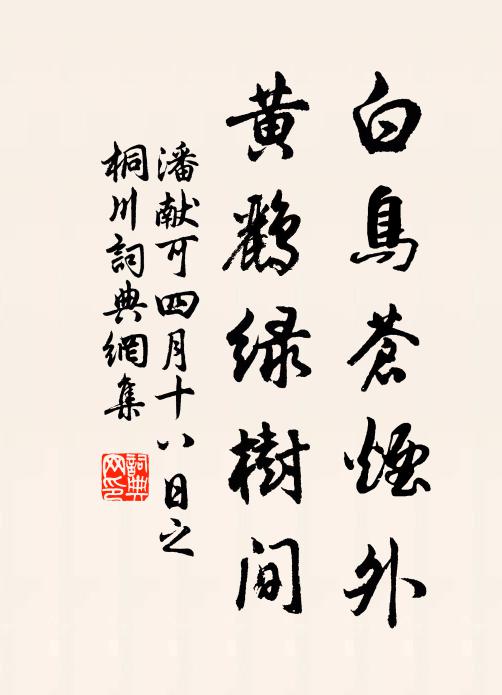 白鳥蒼煙外
黄鸝緑樹間
潘献可四月十八日之
桐川詞典網集
詞典
网印